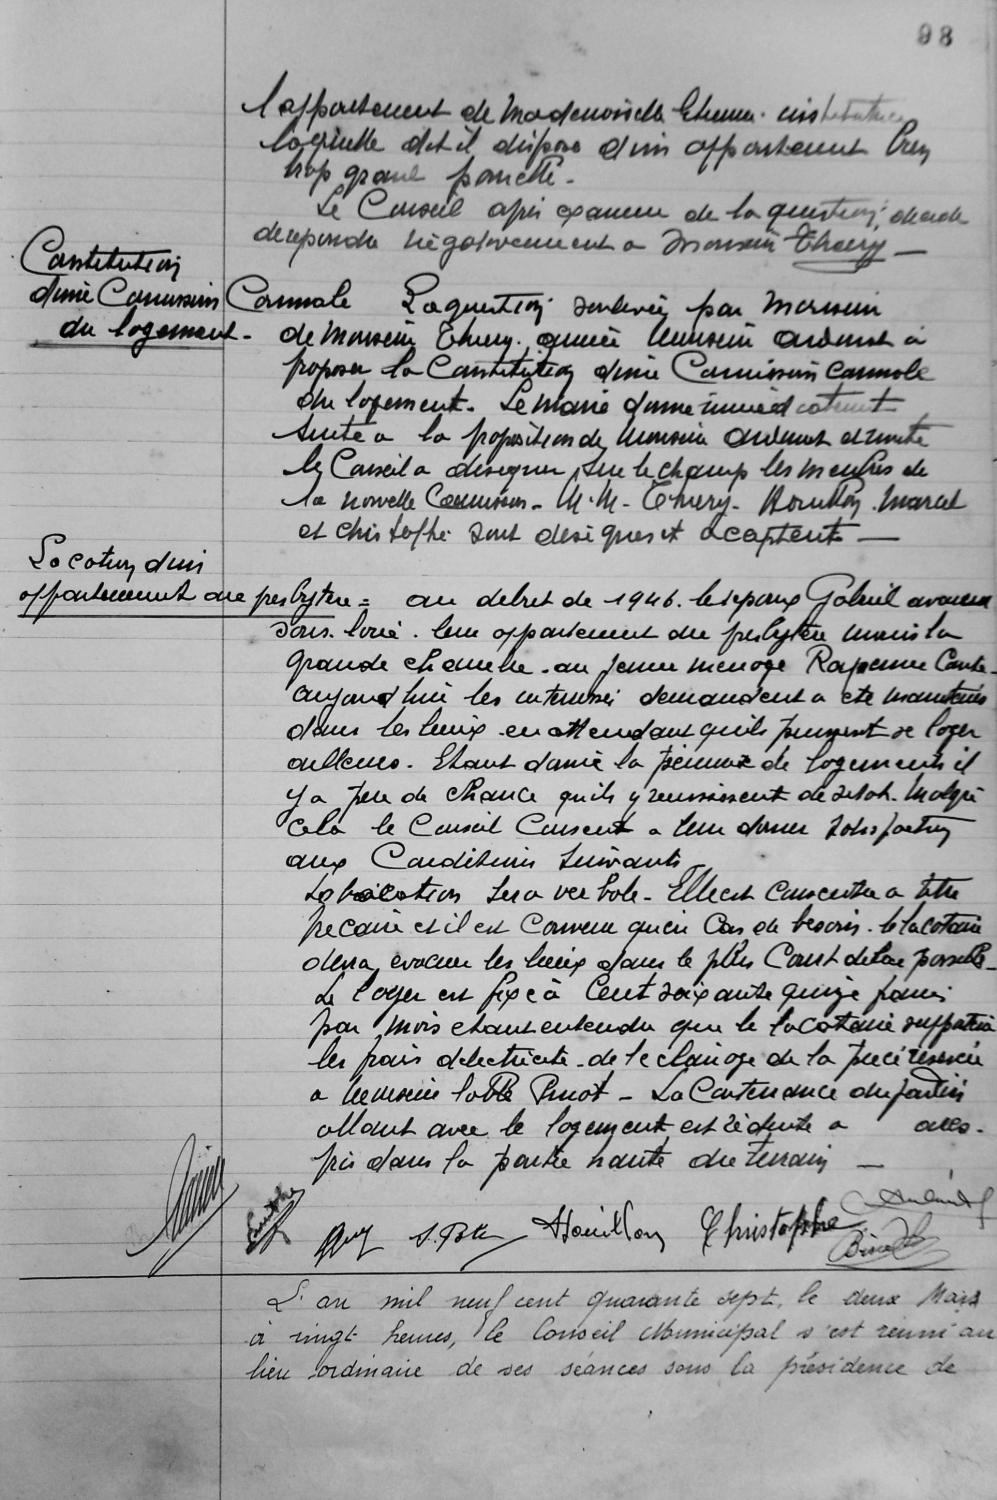 98
l'appartement de Mademoiselle institutrice
laquelle dit-il dispose d'un appartement bien
trop grand pour elle.
Le Conseil après examen de la question, décide
de répondre négativement à Monsieur Thiery —
Constitution
d'une Commission Communale
du logement.
La question soulevée par Monsieur
de Monsieur Thiery. amène Monsieur à
proposer la Constitution d'une Commission Communale
du logement. Le Maire donne immédiatement
suite à la proposition de Monsieur et invite
le Conseil à désigner sur le champ les membres de
la nouvelle Commission. M.M. Thiery. Houillon. Marcel
et Christophe sont désignés et acceptent —
Location d'un
appartement au presbytère =
au début de 1946. les époux Gabriel avaient
sous-loué. leur appartement du presbytère moins la
grande chambre. au jeune ménage
aujourd'hui les intéressés demandent à être maintenus
dans les lieux en attendant qu'ils puissent se loger
ailleurs. Etant donné la pénurie de logements il
y a peu de chance qu'ils y réussissent de sitôt. Malgré
cela le Conseil Consent à leur donner satisfaction
aux Conditions suivants
La location sera verbale. Elle est consentie à titre
précaire et il est convenu qu'en cas de besoin. le locataire
devra évacuer les lieux dans le plus court délai possible.
Le loyer est fixé à Cent soixante quinze francs
par mois étant entendu que le locataire supportera
les frais d'électricité de l'éclairage de la pièce réservée
à Monsieur l'abbé. La Contenance du jardin
allant avec le logement est réduite à ares.
pris dans la partie haute du terrain —
Houillon Christophe
L'an mil neuf cent quarante sept, le deux Mars
à vingt heures, le Conseil Municipal s'est réuni au
lieu ordinaire de ses séances sous la présidence de